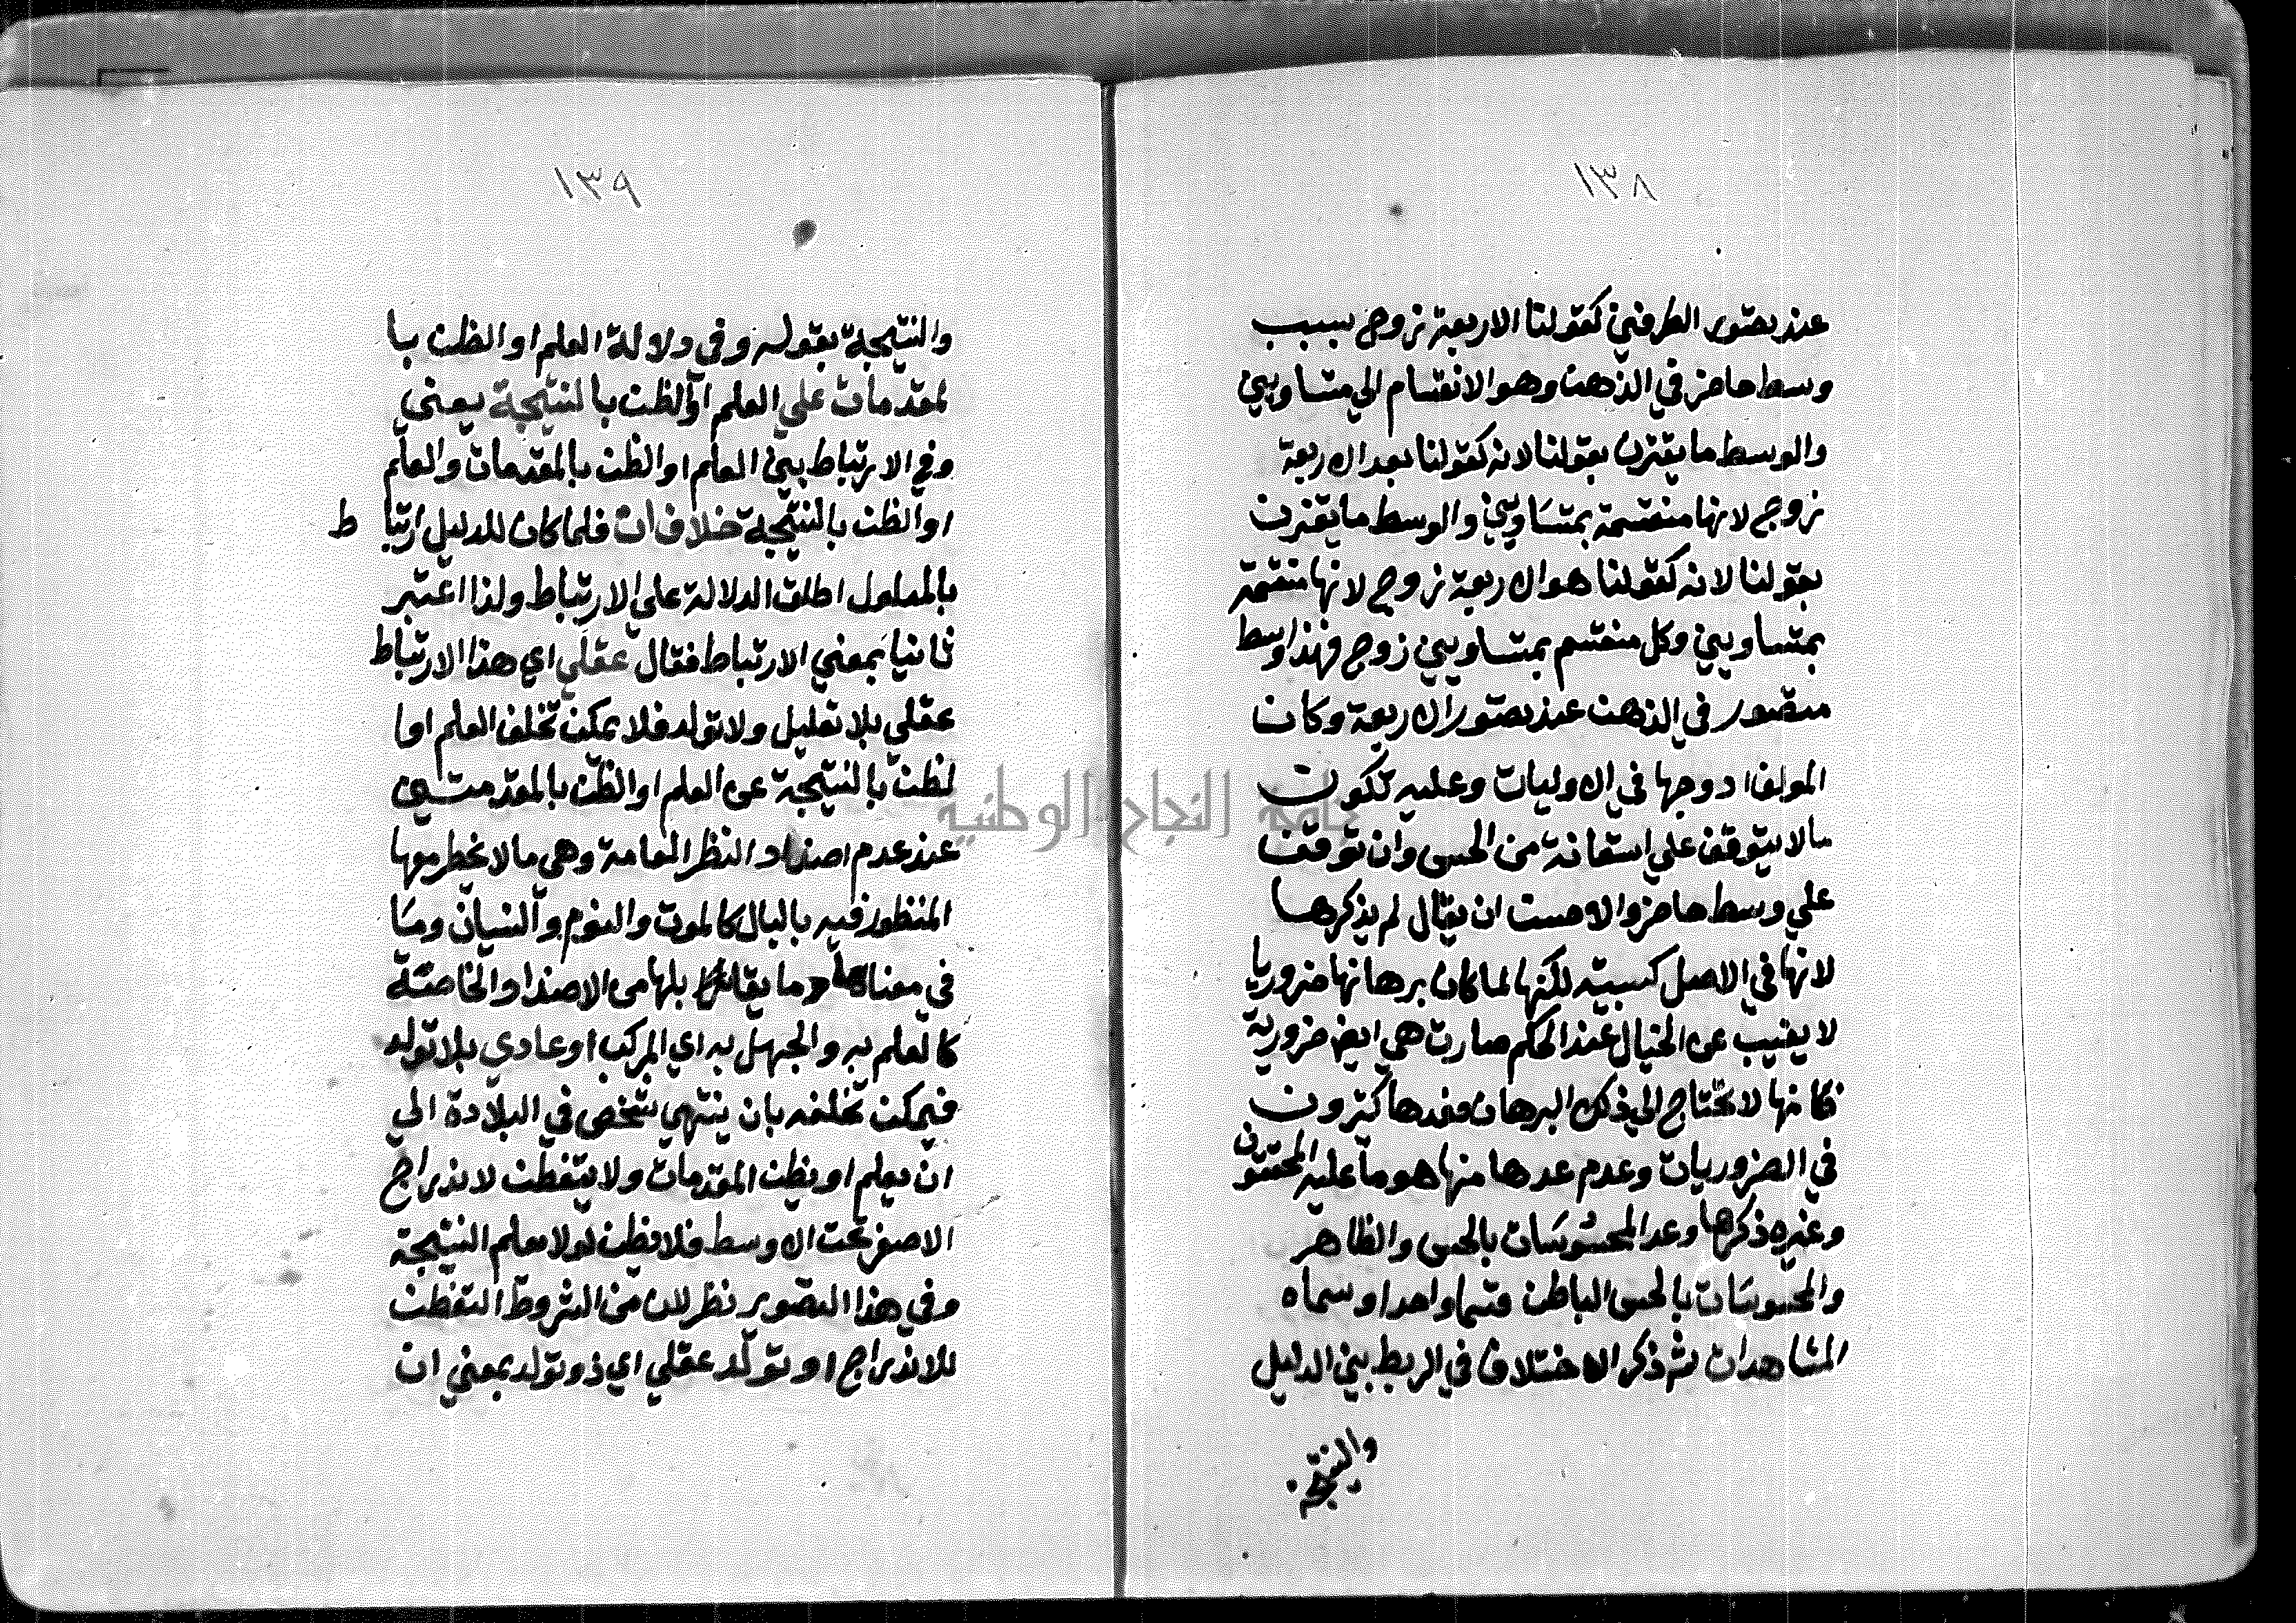 ١٣٨
عند تصور الطرفين كقولنا الاربعة زوج بسبب
وسط حاضر في الذهن وهو الانقسام الي متساويين
والوسط ما يقترن بقولنا لانه كقولنا بعد الاربعة
زوج لانها منقسمة بمتساويين والوسط ما يقترن
بقولنا لانه كقولنا هو الاربعة زوج لانها منقسمة
بمتساويين وكل منقسم بمتساويين زوج فهذا وسط
متصور في الذهن عند تصور الاربعة وكان
المولف ادرجها في الاوليات وعليه تكون
مالا يتوقف علي استعانة من الحس وان توقف
علي وسط حاضر والاحسن ان يقال لم يذكرها
لانها في الاصل كسبية لكنها لما كان برهانها ضروريا
لا يغيب عن الخيال عند الحكم صارت هي ايض ضرورية
فكانها لا تحتاج الي ذلك البرهان فعدها كثيرون
في الضروريات وعدم عدها منها هو ما عليه المحققون
وغيره ذكرها وعد المحسوسات بالحس والظاهر
والمحسوسات بالحس الباطن قسما واحدا وسماه
المشاهدات ثم ذكر الاختلاف في الربط بين الدليل
والنتيجة
١٣٩
والنتيجة بقوله وفي دلالة العلم او الظن با
لمقدمات علي العلم او الظن بالنتيجة يعني
وفي الارتباط بين العلم او الظن بالمقدمات والعلم
او الظن بالنتيجة خلاف ات فلما كان للدليل ارتبا ط
بالمدلول اطلق الدلالة علي الارتباط ولذا اعتبر
ثانيا بمعني الارتباط فقال عقلي اي هذا الارتباط
عقلي بلا تعليل ولا تولد فلا يمكن تخلف العلم اوا
لظن بالنتيجة عن العلم او الظن بالمقدمتين
عند عدم اضداد النظر العامة وهي مالا يخطر معها
المنظور فيه بالبال كالموت والنوم والنسيان وما
في معناها وما يقابلها من الاضداد الخاصة
كالعلم به والجهل به اي المركب او عادي بلا تولد
فيمكن تخلفه بان ينتهي شخص في البلادة الي
ان يعلم او يظن المقدمات ولا يتفطن لاندراج
الاصغر تحت الاوسط فلا يعلم النتيجة
وفي هذا التصوير نظر لان من الشروط التفطن
للاندراج او تولد عقلي اي ذو تولد بمعني ان
جامعة النجاح الوطنية